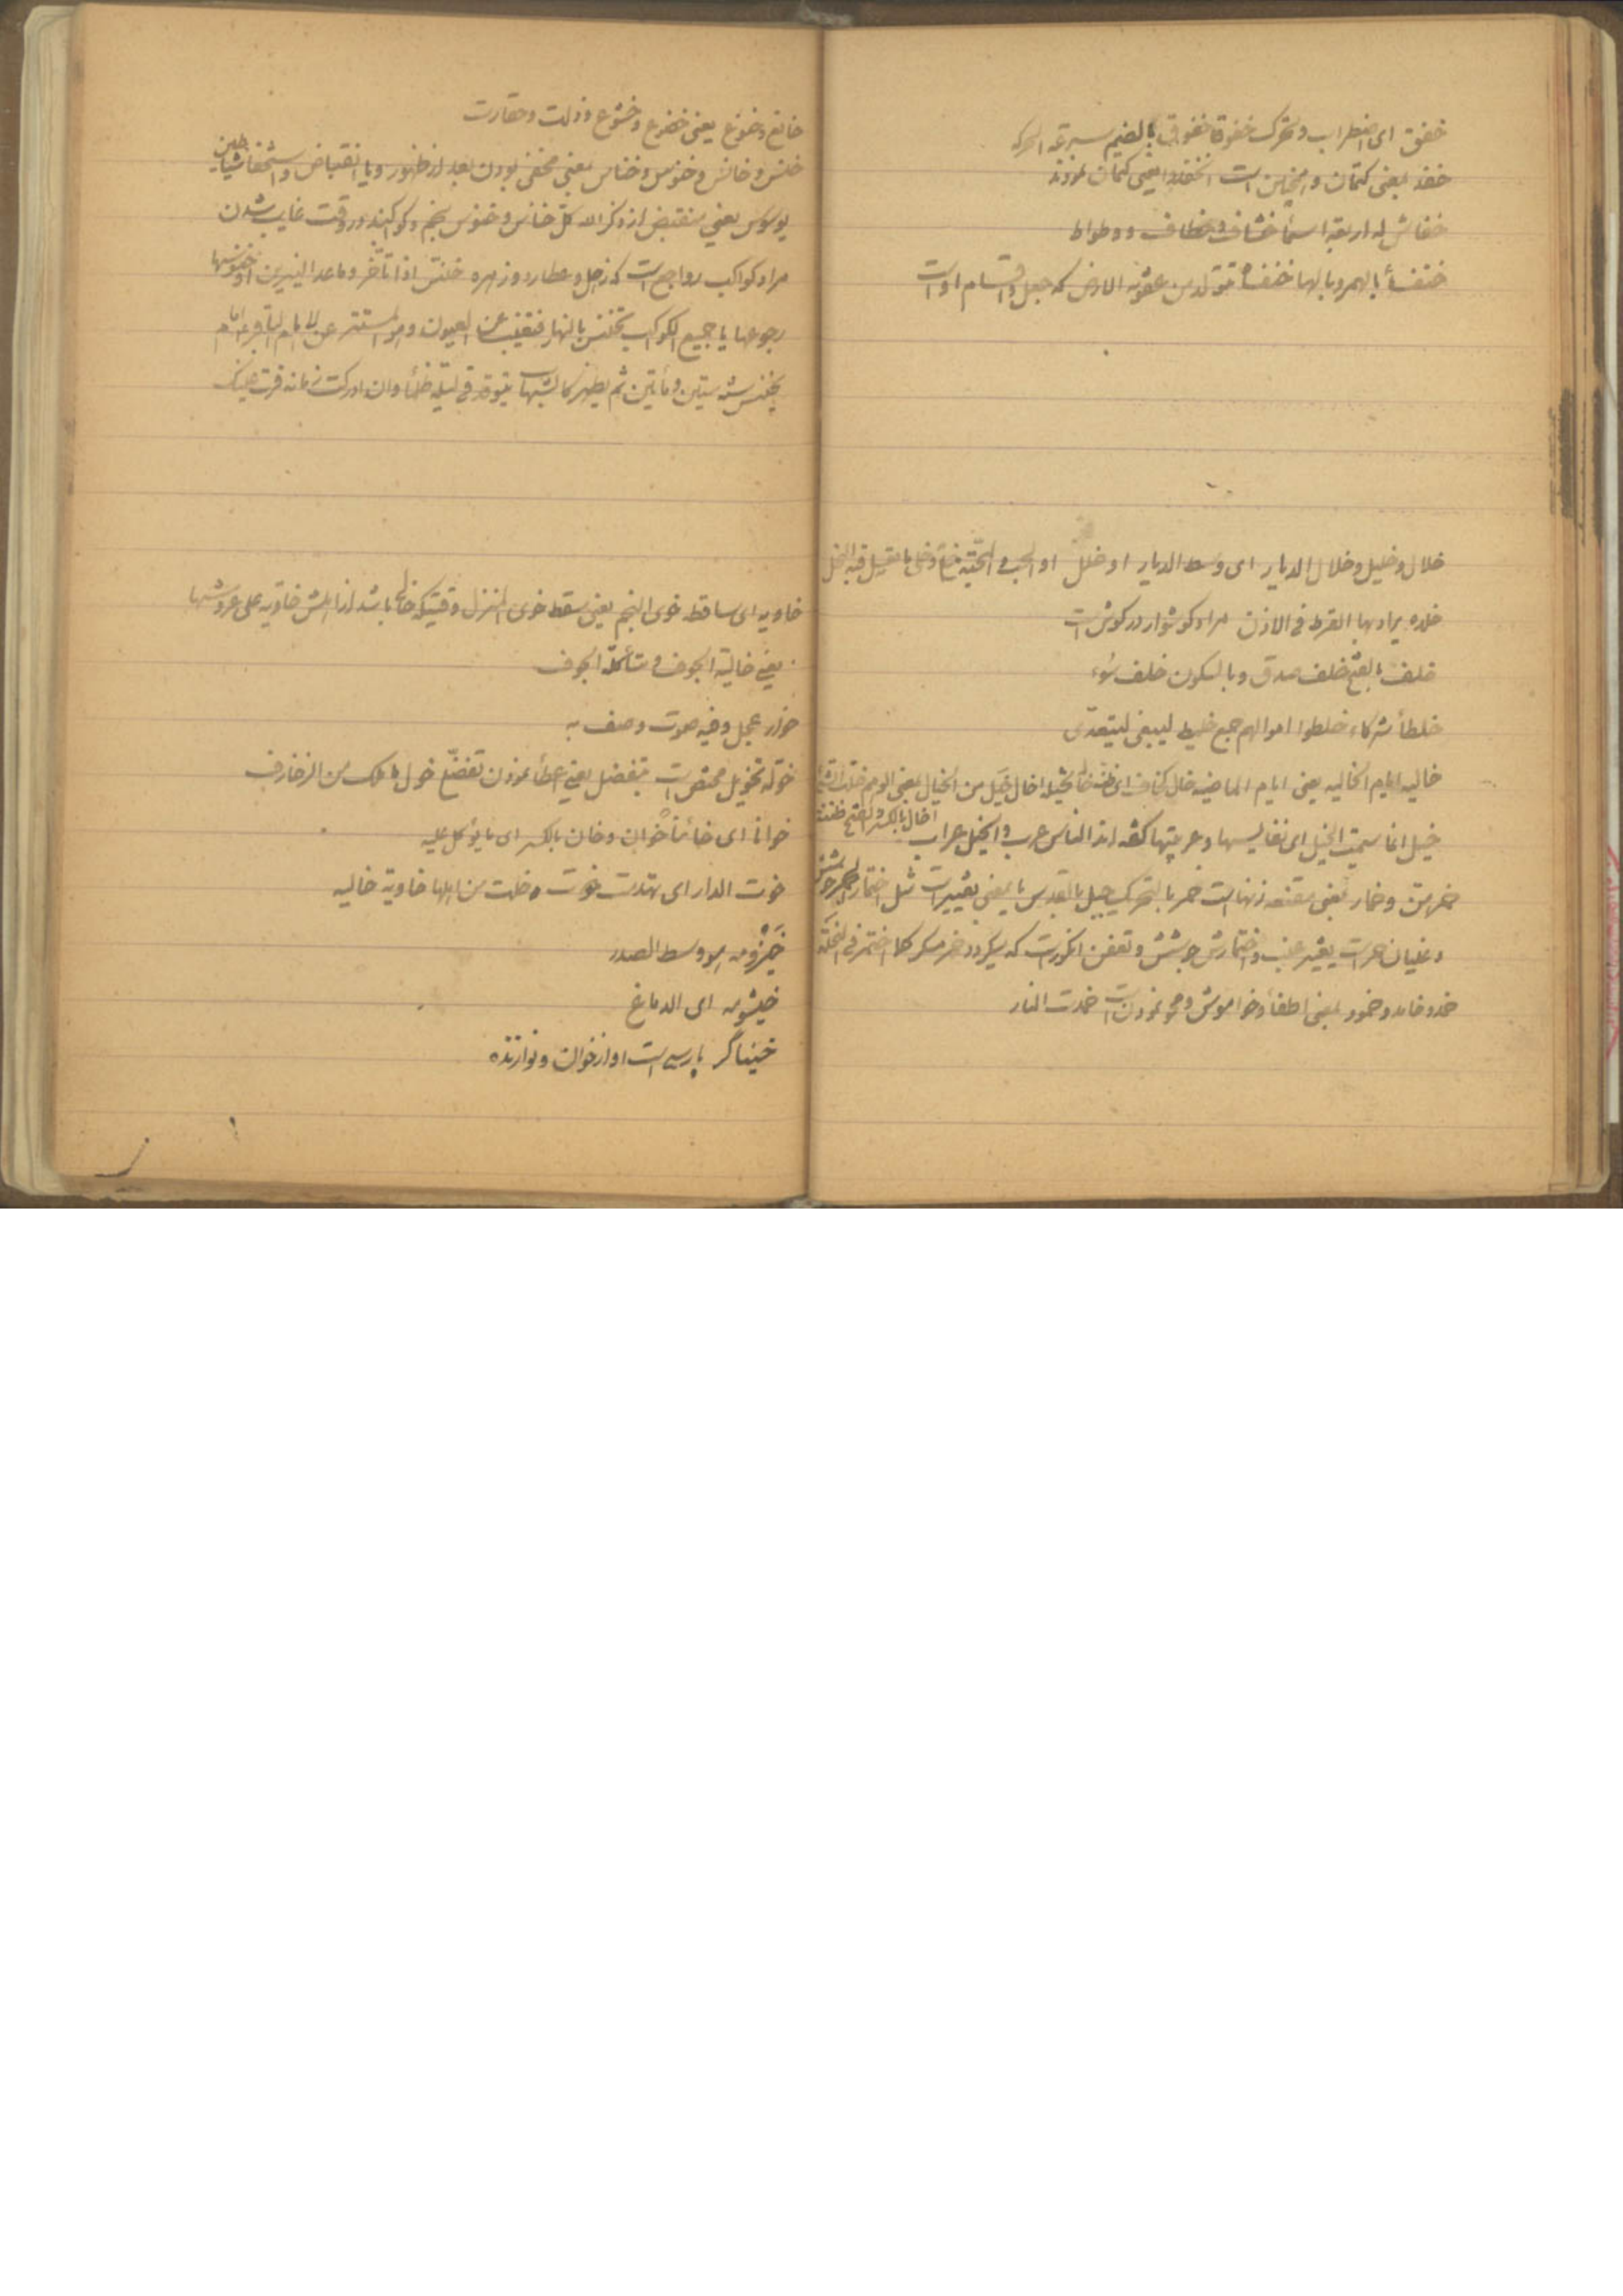 خفق ای اضطراب و تحرک خفوقا خفوق بالضم سرعه الحرکه
خفد بمعنی کتمان و است یعنی کتمان نمودند
خفاش له اربعه اسمأ خشاف و خطاف و وطواط
خنفسأ بالهمز و بالها خنفسأ تتولد من عفونه الارض که جعل و اقسام او است
خلال و خلیل و خلال الدیار ای وسط الدیار او خلل او الحب و المحبّه
خلده یراد بها القرط فی الاذن مراد کوشوار در کوش است
خلف بالفتح خلف صدق و بالسکون خلف سُوء
خلطأ شرکاء خلطوا اموالهم جمع خلیط لیبغی لیتعدّی
خالیه ایام الخالیه یعنی ایام الماضیه خال کخاف ای ظنّ اخال خیّل من الخیال بمعنی الوهم
اخال بالکسر و الفتح ظننت
خیل انما سمیت الخیل ای نفایسها و عربیتها کقوله الناس عرب و الخیل عراب
خمرهن و خمار بمعنی مقنعه زنها است خمر بالتحریک جبل بالقدس یا بمعنی تغییر است مثل اختمار الخمر
و غلیان خمر است بتغیر عنب و اختمارش جوشش و تعفن انکور است که میکردد خمر مسکر کلما اختمر فی
خمد و خامد و خمود بمعنی اطفأ و خاموش و محو نمودن است خمدت النار
خانع و خنوع یعنی خضوع و خشوع و ذلت و حقارت
خنس و خانس و خنوس و خناس بمعنی مخفی بودن بعد از ظهور و یا انقباض و استخفا شیاطین
یوسوس یعنی منقبض از ذکر الله کلّ خانس و خنوس نجم و کواکبند در وقت غایب شدن
مراد کواکب رواجع است که زحل و عطارد و زهره خنس اذا تأخّر و ماعدا النیرین او خنوسها
رجوعها یا جمیع الکواکب تخنس بالنهار فتغیب عن العیون و هو المستتر عن الامام الباقر امام
یخنس سنه ستین و مأتین ثم یظهر کالشهاب یتوقد فی لیله ظلمأ و ان ادرکت زمانه قرت عینک
خاویه ای ساقط خوی النجم یعنی سقط خوی المنزل وقتیکه خالی باشد از اهلش خاویه علی عروشها
یعنی خالیة الجوف و متأکلة الجوف
خوار عجل و فیه صوت وصف به
خوّله تخویل مختص است بتفضل یعنی اعطأ نمودن تفضّلع خول ما ملک من الزخارف
خوانا ای خائناً خُوان و خان بالکسر ای ما یؤکل علیه
خوت الدار ای تهدمت خوت و خلت من اهلها خاویه خالیه
خَیْزُومه هو وسط الصدر
خیشومه ای الدماغ
خنیاگر پارسی است اوازخوان و نوازنده